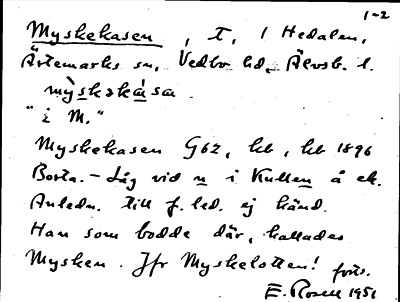 1-2
Myskekasen, T, i Hedalen,
Ärtemarks sn, Vedbo hd, Älvsb. l.
mỳskəkása
"i M."
Myskekasen G62, hd, hd 1896
Borta. - Låg vid n i Kullen å ek.
Anledn. till f. led. ej känd.
Han som bodde där, kallades
Mysken. Jfr Myskelotten! forts.
E. Rosell 1951